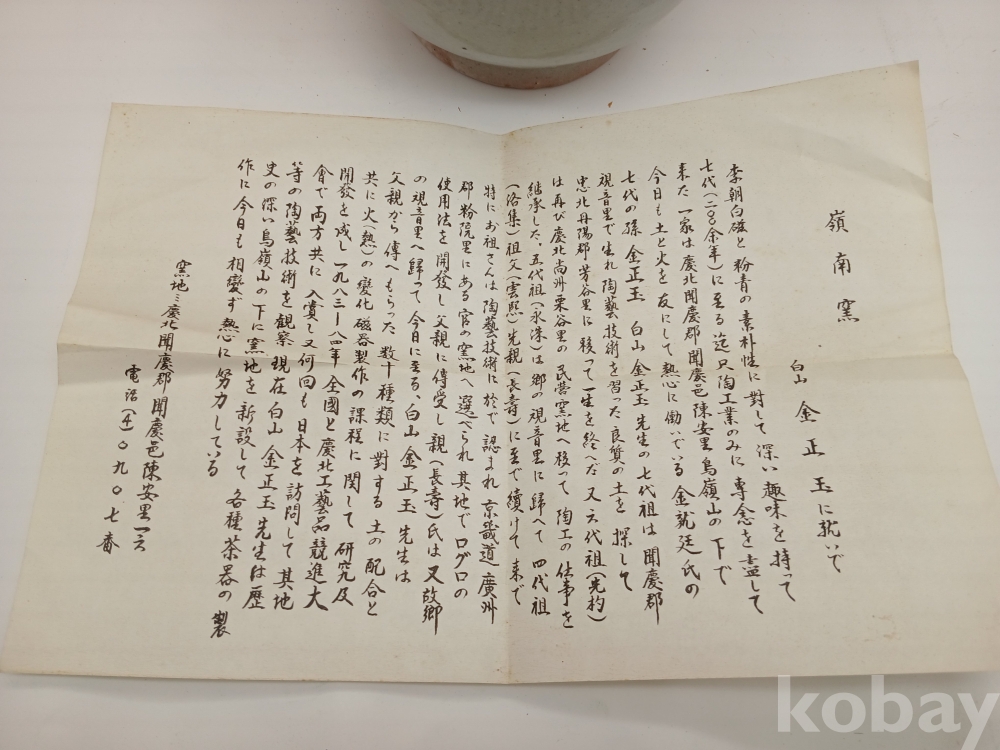 嶺南窯
白山 金正玉に就いで
李朝白磁と粉青の素朴性に対して 深い趣味を持って
七代(二〇〇余年)に至る迄只陶工業のみに専念を盡して
来た一家は慶北聞慶郡聞慶邑陳安里鳥嶺山の下で
今日も土と火を友にして熱心に働いでいる金就廷氏の
七代の孫 金正玉 白山 金正玉先生の七代祖は聞慶郡
観音里で生れ陶藝技術を習った良質の土を 探して
忠北丹陽郡 谷里に移って一生を終へだ 又六代祖(光杓)
は再び慶北尚州栗谷里の民営窯地へ移って陶工の仕事を
継承した、五代祖(永洙)は郷の観音里に帰へて 四代祖
(洛集)祖父(雲熙)先親(長壽)に至で續けて来で
特にお祖さんは陶藝技術に於で認まれ京畿道廣州
郡粉院里にある官の窯地へ選べられ其地でログロの
使用法を開發し父親に傳受し親(長壽)氏は又故郷
の観音里へ帰って今日に至る、白山金正玉先生は
父親から傳へもらった数十種類に對する土の配合と
共に火(熱)の変化磁器製作の課程に関して研究及
開發を成し一九八三―八四年全國と慶北工藝品競進大
會で両方共に入賞し又何回も日本を訪問して其地
等の陶藝技術を観察現在白山 金正玉先生は歴
史の深い鳥嶺山の下に窯地を新設して各種茶器の製
作に今日も相變ず熱心に努力している
窯地:慶北聞慶郡聞慶邑陳安里一六
電話 〇九〇七番
kobay